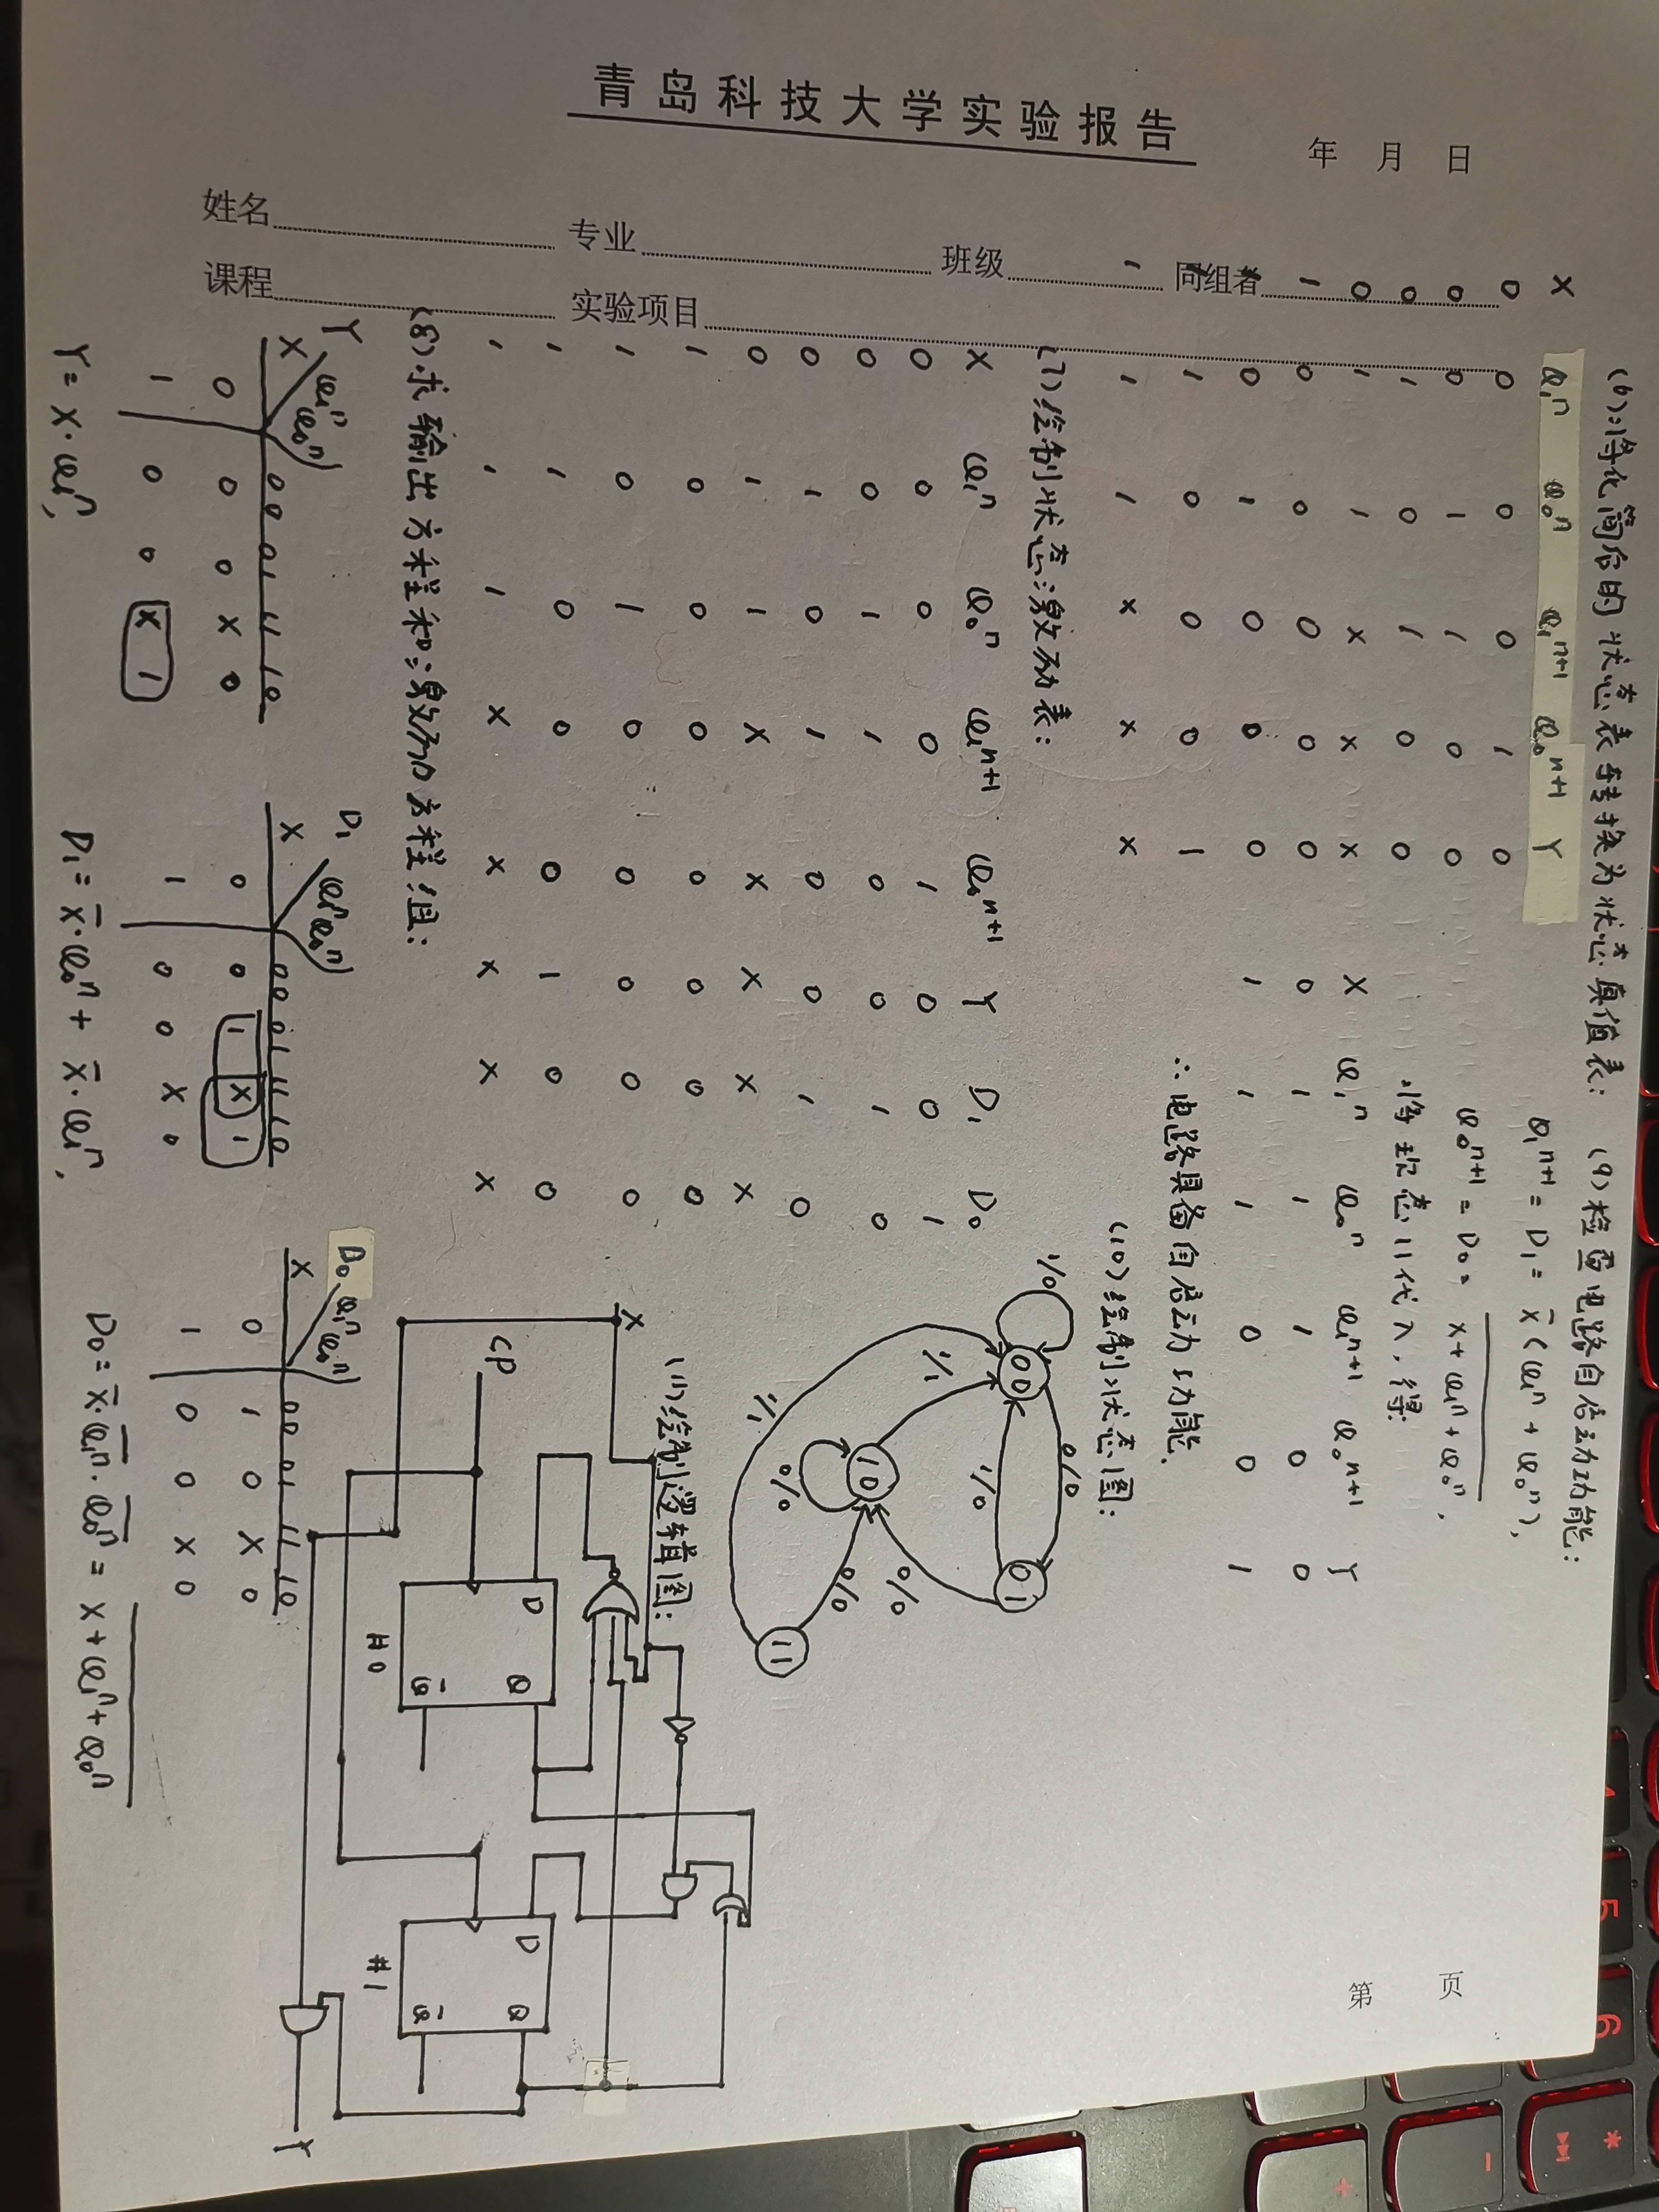 青岛科技大学实验报告
年 月 日
姓名 专业 班级 同组者
课程 实验项目
(6):将化简后的状态表转换为状态真值表:
X Q₁ⁿ Q₀ⁿ Q₁ⁿ⁺¹ Q₀ⁿ⁺¹ Y
0 0 0 0 1 0
0 0 1 1 0 0
0 1 0 1 0 0
0 1 1 x x x
1 0 0 0 0 0
1 0 1 0 0 0
1 1 0 0 0 1
1 1 1 x x x
(7)绘制状态激励表:
X Q₁ⁿ Q₀ⁿ Q₁ⁿ⁺¹ Q₀ⁿ⁺¹ Y D₁ D₀
0 0 0 0 1 0 0 1
0 0 1 1 0 0 1 0
0 1 0 1 0 0 1 0
0 1 1 x x x x x
1 0 0 0 0 0 0 0
1 0 1 0 0 0 0 0
1 1 0 0 0 1 0 0
1 1 1 x x x x x
(8)求输出方程和激励方程组:
Y Q₁ⁿQ₀ⁿ
X 00 01 11 10
0 0 0 x 0
1 0 0 x 1
Y = X·Q₁ⁿ,
D₁ Q₁ⁿQ₀ⁿ
X 00 01 11 10
0 0 1 x 1
1 0 0 x 0
D₁ = X̅·Q₀ⁿ + X̅·Q₁ⁿ,
D₀ Q₁ⁿQ₀ⁿ
X 00 01 11 10
0 1 0 x 0
1 0 0 x 0
D₀ = X̅·Q̅₁ⁿ·Q̅₀ⁿ = X̅+̅Q̅₁̅ⁿ̅+̅Q̅₀̅ⁿ̅
(9)检查电路自启动功能:
Q₁ⁿ⁺¹ = D₁ = X̅(Q₁ⁿ + Q₀ⁿ),
Q₀ⁿ⁺¹ = D₀ = X̅+̅Q̅₁̅ⁿ̅+̅Q̅₀̅ⁿ̅,
将现态11代入,得:
X Q₁ⁿ Q₀ⁿ Q₁ⁿ⁺¹ Q₀ⁿ⁺¹ Y
0 1 1 1 0 0
1 1 1 0 0 1
∴电路具备自启动功能.
(10)绘制状态图:
1/0 00 0/0 1/0 01
1/1 10 0/0 0/0
1/1 0/0 11
(11)绘制逻辑图:
X
CP
D Q Q̅ #0
D Q Q̅ #1
Y
第 页